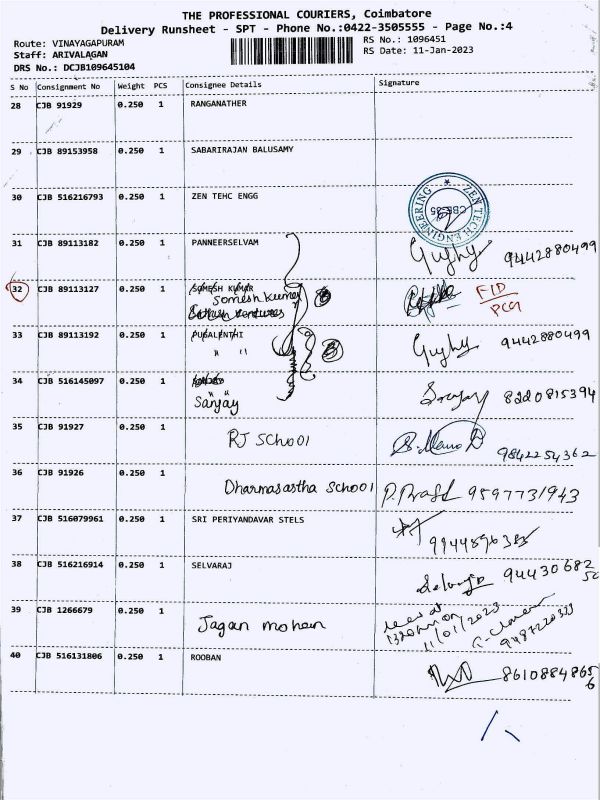 THE PROFESSIONAL COURIERS, Coimbatore
Delivery Runsheet - SPT - Phone No.:0422-3505555 - Page No.:4
Route: VINAYAGAPURAM
Staff: ARIVALAGAN
DRS No.: DCJB109645104
RS No.: 1096451
RS Date: 11-Jan-2023
S No Consignment No Weight PCS Consignee Details Signature
28 CJB 91929 0.250 1 RANGANATHER
29 CJB 89153958 0.250 1 SABARIRAJAN BALUSAMY
30 CJB 516216793 0.250 1 ZEN TEHC ENGG
ZEN TECH ENGINEERING
CBE-35
31 CJB 89113182 0.250 1 PANNEERSELVAM
9442880499
32 CJB 89113127 0.250 1 SOMESH KUMAR
Somesh Kumar
FID
33 CJB 89113192 0.250 1 PUGALENTHI
" "
9442880499
34 CJB 516145097 0.250 1
" "
Sanjay
Sanjay 8220815394
35 CJB 91927 0.250 1
RJ SCHOOl
9842254362
36 CJB 91926 0.250 1
Dharmasastha SchOOl
9597731943
37 CJB 516079961 0.250 1 SRI PERIYANDAVAR STELS
38 CJB 516216914 0.250 1 SELVARAJ
Selvaraj
39 CJB 1266679 0.250 1
Jagan mohan
11/01/2023
40 CJB 516131806 0.250 1 ROOBAN